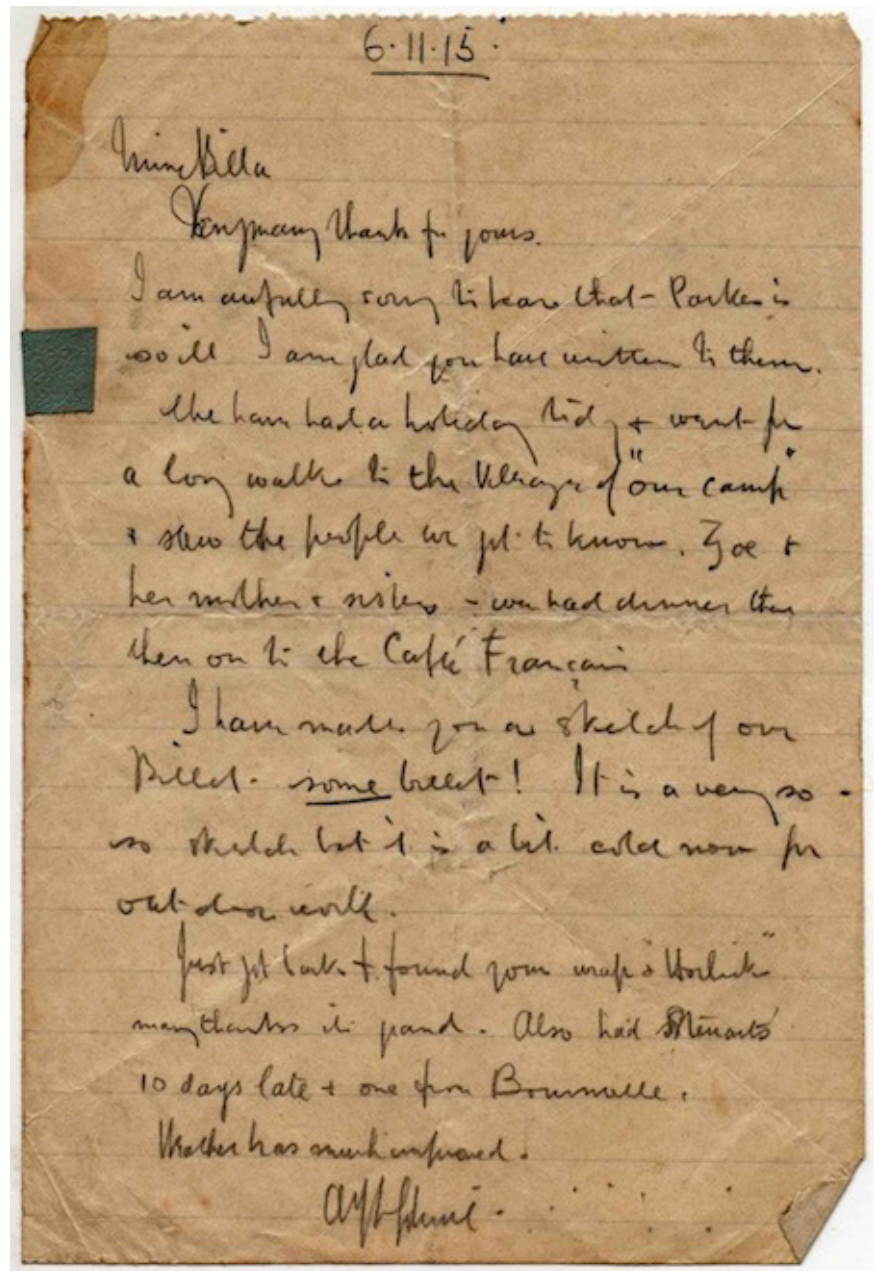 6.11.15.
Mine Billa
Very many thanks for yours.
I am awfully sorry to hear that Parker is
so ill I am glad you have written to them.
We have had a holiday tody & went for
a long walk to the village of "our camp"
& saw the people we got to know. Zoe &
her mother & sisters - we had dinner there
then on to the Café Francais
I have made you a sketch of our
Billet - some billet! It is a very so-
so sketch but it is a bit cold now for
out door work.
Just got back & found your wrap & "Horlicks"
many thanks its grand. Also had Stewarts
10 days late & one from Bournville.
Weather has much improved.